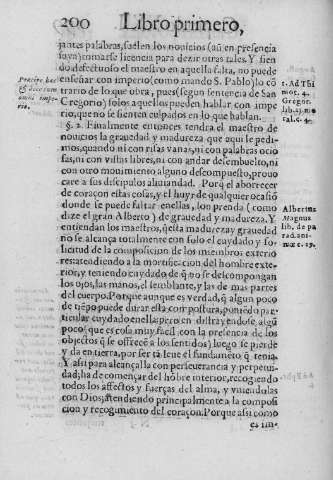 200 Libro primero,
jantes palabras, suelen los novicios (aũ en presencia
suya) tomarse licencia para dezir otras tales. Y sien
do defectuoso el maestro en aquella falta, no puede
enseñar con imperio (como mando S. Pablo) lo cõ
trario de lo que obra, pues (segun sentencia de San
Gregorio) solos aquellos pueden hablar con impe
rio, que no se sienten culpados en lo que hablan.
§. 2. Finalmente entonces tendra el maestro de
novicios la gravedad y madureza que aqui le pedi-
mos, quando ni con risas vanas, ni con palabras ocio
sas, ni con vistas libres, ni con andar desembuelto, ni
con otro movimiento alguno descompuesto, provo
care a sus discipulos a liviandad. Porq̃ el aborrecer
de coraçon estas cosas, y el huyr de qualquier ocasiõ
donde se puede faltar en ellas, son prenda (como
dize el gran Alberto) de gravedad y madureza. Y
entiendan los maestros, q̃ esta madureza y gravedad
no se alcança totalmente con solo el cuydado y so-
licitud de la composicion de los miembros exterio
res atendiendo a la mortificacion del hombre exte-
rior, y teniendo cuydado de q̃ no se descompongan
los ojos, las manos, el semblante, y las de mas partes
del cuerpo. Porque aunque es verdad, q̃ algun poco
de tiẽpo puede durar esta compostura, poniẽdo par-
ticular cuydado en ella: pero en distrayendose algũ
poco (que es cosa muy facil con la presencia de los
objectos q̃ se offrecẽ a los sentidos) luego se pierde
y da en tierra, por ser tã leve el fundamẽto q̃ tenia.
Y assi para alcançalla con perseverancia y perpetui-
dad; ha de començar del hõbre interior, recogiendo
todos los affectos y fuerças del alma, y uniendolas
con Dios, atendiendo principalmente a la composi
cion y recogimiento del coraçon. Porque assi como
1. Ad Thi
mot. 4.
Gregor.
Albertus
Magnus
lib. de pa
rad. ani-